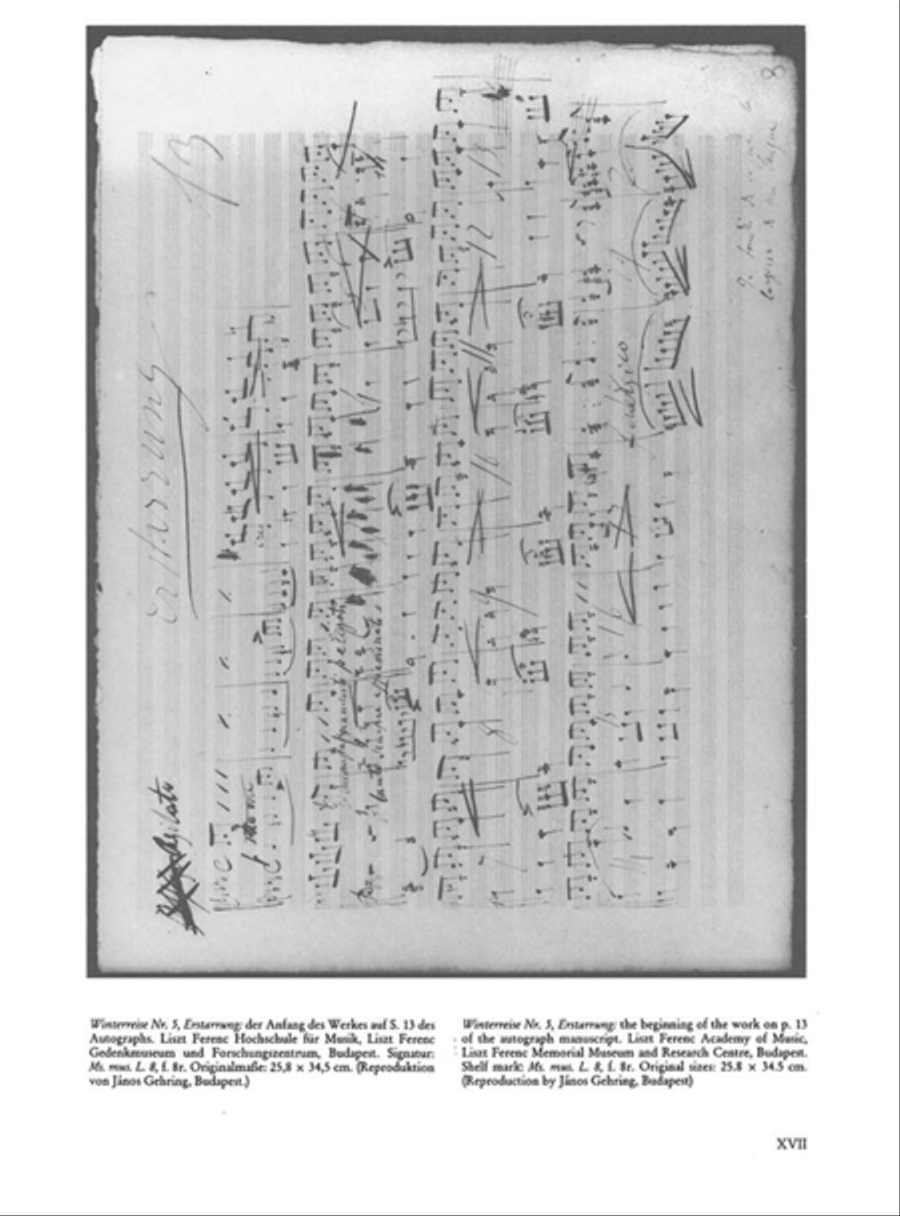 Erstarrung
13
8
Agitato
energico
Winterreise Nr. 5, Erstarrung: der Anfang des Werkes auf S. 13 des
Autographs. Liszt Ferenc Hochschule für Musik, Liszt Ferenc
Gedenkmuseum und Forschungszentrum, Budapest. Signatur:
Ms. mus. L. 8, f. 8r. Originalmaße: 25,8 × 34,5 cm. (Reproduktion
von János Gehring, Budapest.)
Winterreise Nr. 5, Erstarrung: the beginning of the work on p. 13
of the autograph manuscript. Liszt Ferenc Academy of Music,
Liszt Ferenc Memorial Museum and Research Centre, Budapest.
Shelf mark: Ms. mus. L. 8, f. 8r. Original sizes: 25.8 × 34.5 cm.
(Reproduction by János Gehring, Budapest)
XVII